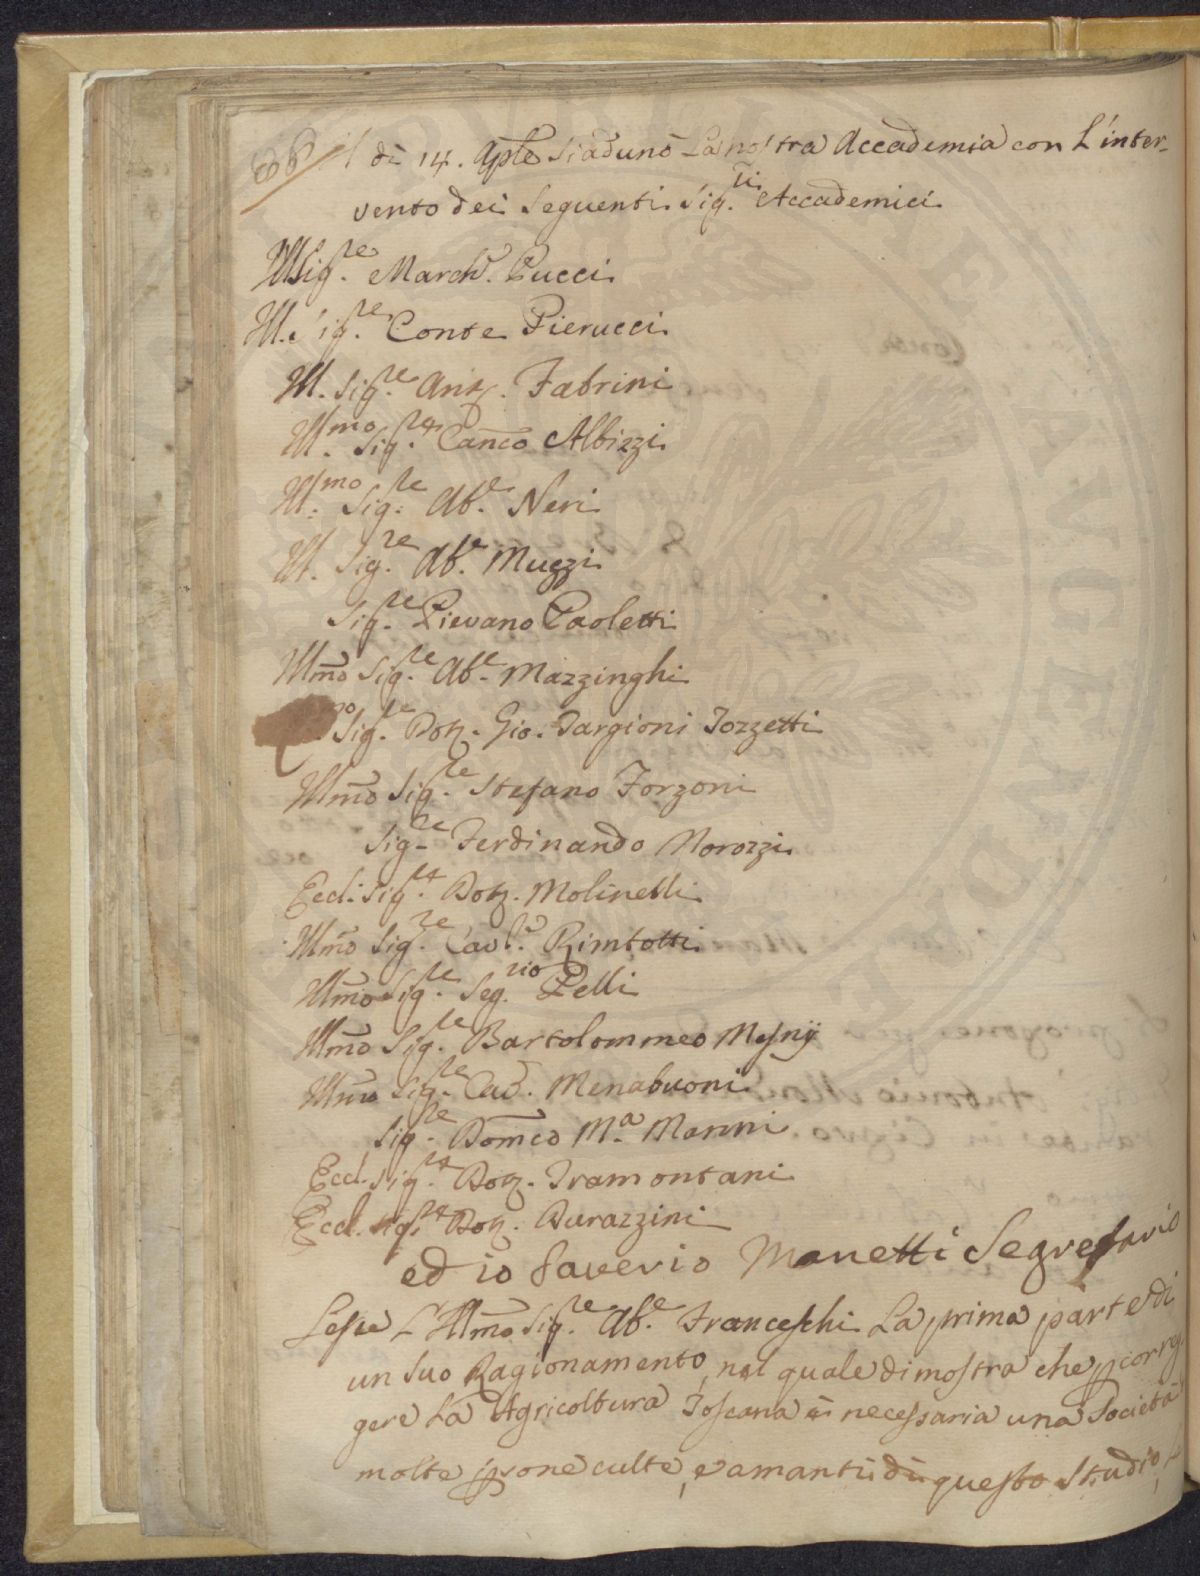 66 / di 14. Aple Si adunò La nostra Accademia con L'inter-
vento dei Seguenti Sig.ri Accademici
Ill Sig.re March. Pucci
Ill. Sig.re Conte Pierucci
Ill. Sig.re Ant. Fabrini
Ill.mo Sig.re Canco Albizzi
Ill.mo Sig.re Ab.e Neri
Ill. Sig.re Ab.e Muzzi
Sig.re Pievano Paoletti
Illmo Sig.re Ab.e Mazzinghi
mo Sig.re Dott. Gio. Targioni Tozzetti
Illmo Sig.re Stefano Forzoni
Sig.re Ferdinando Morozzi
Eccl. Sig.re Dott. Molinelli
Illmo Sig.re Cav.e Rimbotti
Illmo Sig.re Seg.rio Pelli
Illmo Sig.re Bartolommeo Mesnÿ
Illmo Sig.re Cav. Menabuoni
Sig.re Domco M.a Manni
Eccl. Sig.re Dott. Tramontani
Eccl. Sig.re Dott. Durazzini
ed io Saverio Manetti Segretario
Lesse L'Illmo Sig.re Ab.e Franceschi La prima parte di
un suo Ragionamento, nel quale dimostra che p correg
gere La Agricoltura Toscana è necessaria una Società
molte psone culte, e amanti di questo Studio,